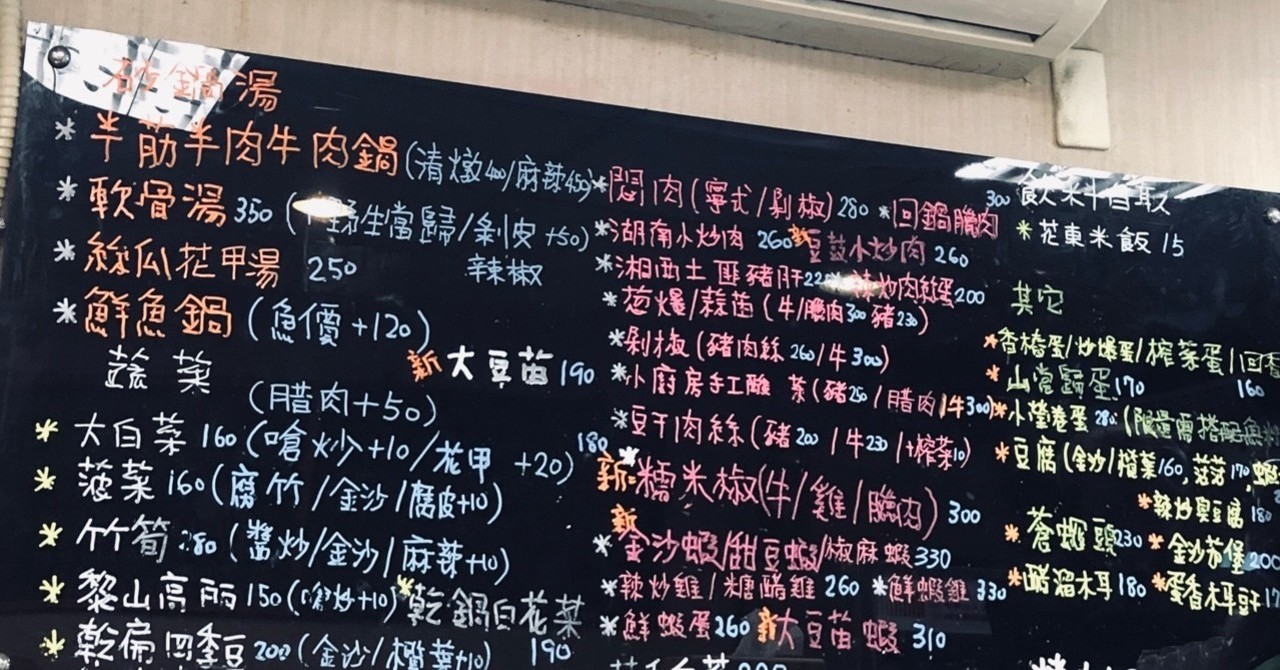 砂鍋湯
*半筋半肉牛肉鍋(清燉400/麻辣450)
*軟骨湯350(野生當歸/剝皮辣椒+50)
*絲瓜花甲湯 250
*鮮魚鍋(魚價+120)
蔬菜
新大豆苗190
(腊肉+50)
*大白菜160(嗆炒+10/花甲+20)180
*菠菜160(腐竹/金沙/腐皮+10)
*竹筍280(醬炒/金沙/麻辣+10)
*黎山高丽150(嗆炒+10)
*乾鍋白花菜190
*乾扁四季豆200(金沙/欖菜+10)
*悶肉(寧式/剁椒)280
*回鍋臘肉300
*湖南小炒肉260
新豆豉小炒肉260
*湘西土匪豬肝220
辣炒肉絲蛋200
*葱爆/蒜苗(牛/臘肉300豬230)
*剁椒(豬肉絲260/牛300)
*小廚房手工醃菜(豬250/腊肉/牛300)
*豆干肉絲(豬200/牛230/+榨菜10)
新*糯米椒(牛/雞/臘肉)300
新
*金沙蝦/甜豆蝦/椒麻蝦330
*辣炒雞/糖醋雞260
*鮮蝦雞330
*鮮蝦蛋260
新大豆苗蝦310
飲料自取
*花東米飯15
其它
*香椿蛋/炒爆蛋/榨菜蛋/回香
160
*山當歸蛋170
*小卷蛋280
*豆腐(金沙/欖菜160,菠菜170,蝦
*辣炒臭豆腐180
*蒼蠅頭230
*金沙茄堡200
*醋溜木耳180
*蛋香木耳豆干17